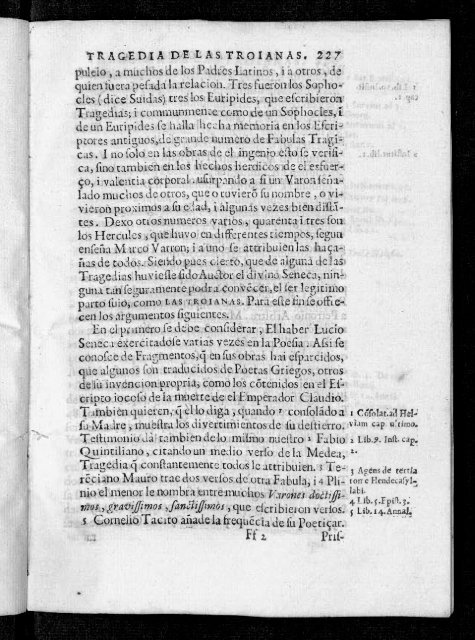 TRAGEDIA DE LAS TROIANAS. 227
puleio, a muchos de los Padres Latinos, i a otros, de
quien fuera pesada la relacion. Tres fueron los Sopho-
cles (dice Suidas) tres los Euripides, que escribieron
Tragedias; i communmente como de un Sophocles, i
de un Euripides se halla hecha memoria en los Escri-
ptores antiguos, de grande numero de Fabulas Tragi-
cas. I no solo en las obras de el ingenio esto se verifi-
ca, sino tambien en los hechos heroicos de el esfuer-
ço, i valentia corporal usurpando a si un Varon seña-
lado muchos de otros, que o tuvierõ su nombre, o vi-
vieron proximos a su edad, i algunas vezes bien distã-
tes. Dexo otros numeros varios, quarenta i tres son
los Hercules, que huvo en differentes tiempos, segun
enseña Marco Varron; i a uno se attribuien las haça-
ñas de todos. Siendo pues cierto, que de alguna de las
Tragedias huviesse sido Auctor el divino Seneca, nin-
guna tan seguramente podra convēcer, el ser legitimo
parto suio, como LAS TROIANAS. Para este fin se offre-
cen los argumentos siguientes.
En el primero se debe considerar, El haber Lucio
Seneca exercitadose varias vezes en la Poesia. Assi se
conosce de Fragmentos, q̃ en sus obras hai esparcidos,
que algunos son traducidos de Poetas Griegos, otros
de su invencion propria, como los cõtenidos en el Es-
cripto iocoso de la muerte de el Emperador Claudio.
Tambien quieren, q̃ el lo diga, quando ¹ consolãdo a
su Madre, muestra los divertimentos de su destierro.
Testimonio da tambien de lo mismo nuestro ² Fabio
Quintiliano, citando un medio verso de la Medea,
Tragedia q̃ constantemente todos le attribuien. ³ Te-
rēciano Mauro trae dos versos de otra Fabula, i ⁴ Pli-
nio el menor le nombra entre muchos Varones doctissi-
mos, gravissimos, sanctissimos, que escribieron versos.
⁵ Cornelio Tacito añade la frequēcia de su Poetiçar.
Ff 2 Pris-
1 Cõsolat. ad Hel-
viam cap. ultimo.
2 Lib. 9. Inst. cap.
2.
3 Agens de tertia
tom e Hendecasyl-
labi.
4 Lib. 5. Epist. 3.
5 Lib. 14. Annal.